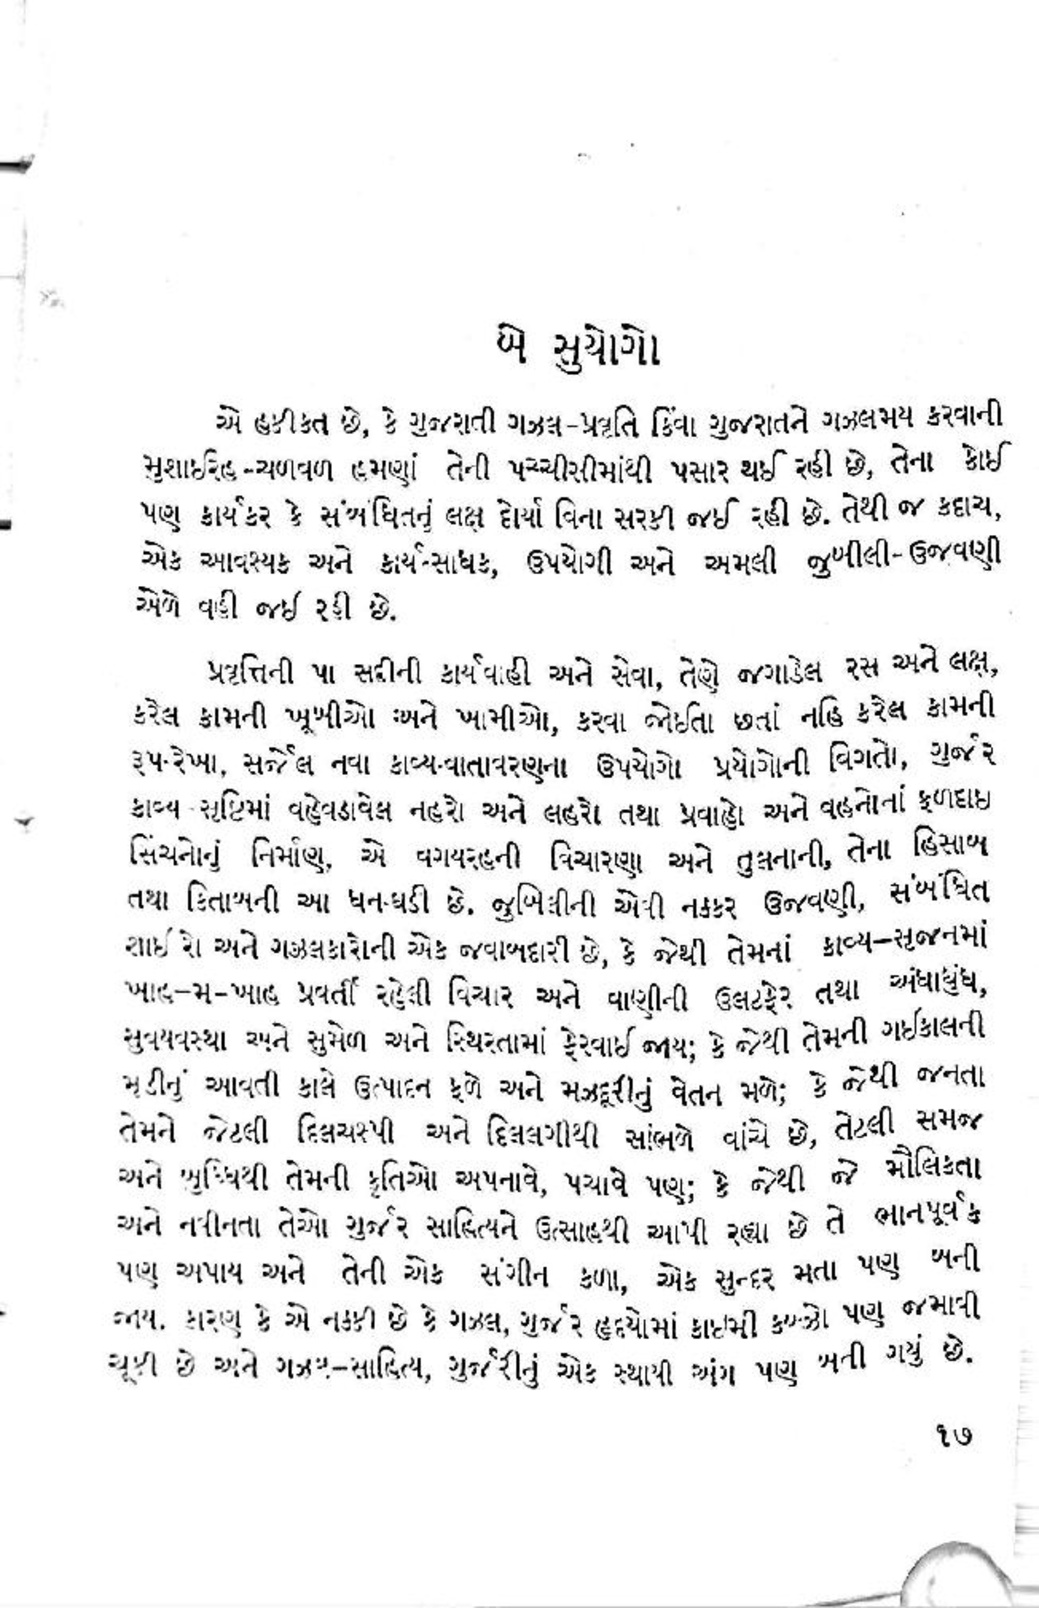 બે સુયોગો
એ હકીકત છે, કે ગુજરાતી ગઝલ-પ્રવૃતિ કિંવા ગુજરાતને ગઝલમય કરવાની
મુશાઇરિહ-ચળવળ હમણાં તેની પચ્ચીસીમાંથી પસાર થઈ રહી છે, તેના કોઈ
પણ કાર્યકર કે સંબંધિતનું લક્ષ દોર્યા વિના સરકી જઈ રહી છે. તેથી જ કદાચ,
એક આવશ્યક અને કાર્ય-સાધક, ઉપયોગી અને અમલી જુબીલી-ઉજવણી
એળે વહી જઈ રહી છે.
પ્રવૃત્તિની પા સદીની કાર્યવાહી અને સેવા, તેણે જગાડેલ રસ અને લક્ષ,
કરેલ કામની ખૂબીઓ અને ખામીઓ, કરવા જોઈતા છતાં નહિ કરેલ કામની
રૂપ-રેખા, સર્જેલ નવા કાવ્ય-વાતાવરણના ઉપયોગો પ્રયોગોની વિગતો, ગુર્જર
કાવ્ય-સૃષ્ટિમાં વહેવડાવેલ નહરો અને લહરો તથા પ્રવાહો અને વહનોનાં ફળદાઇ
સિંચનોનું નિર્માણ, એ વગયરહની વિચારણા અને તુલનાની, તેના હિસાબ
તથા કિતાબની આ ધન-ઘડી છે. જુબિલીની એવી નક્કર ઉજવણી, સંબંધિત
શાઈરો અને ગઝલકારોની એક જવાબદારી છે, કે જેથી તેમનાં કાવ્ય-સૃજનમાં
ખાહ-મ-ખાહ પ્રવર્તી રહેલી વિચાર અને વાણીની ઉલટફેર તથા અંધાધુંધ,
સુવ્યવસ્થા અને સુમેળ અને સ્થિરતામાં ફેરવાઈ જાય; કે જેથી તેમની ગઈકાલની
મૂડીનું આવતી કાલે ઉત્પાદન ફળે અને મઝદૂરીનું વેતન મળે; કે જેથી જનતા
તેમને જેટલી દિલચસ્પી અને દિલલગીથી સાંભળે વાંચે છે, તેટલી સમજ
અને બુધ્ધિથી તેમની કૃતિઓ અપનાવે, પચાવે પણ; કે જેથી જે મૌલિકતા
અને નવીનતા તેઓ ગુર્જર સાહિત્યને ઉત્સાહથી આપી રહ્યા છે તે ભાનપૂર્વક
પણ અપાય અને તેની એક સંગીન કળા, એક સુન્દરમતા પણ બની
જાય. કારણ કે એ નક્કી છે કે ગઝલ, ગુર્જર હૃદયોમાં કાઇમી કબ્ઝો પણ જમાવી
ચૂકી છે અને ગઝલ-સાહિત્ય, ગુર્જરીનું એક સ્થાયી અંગ પણ બની ગયું છે.
૧૭